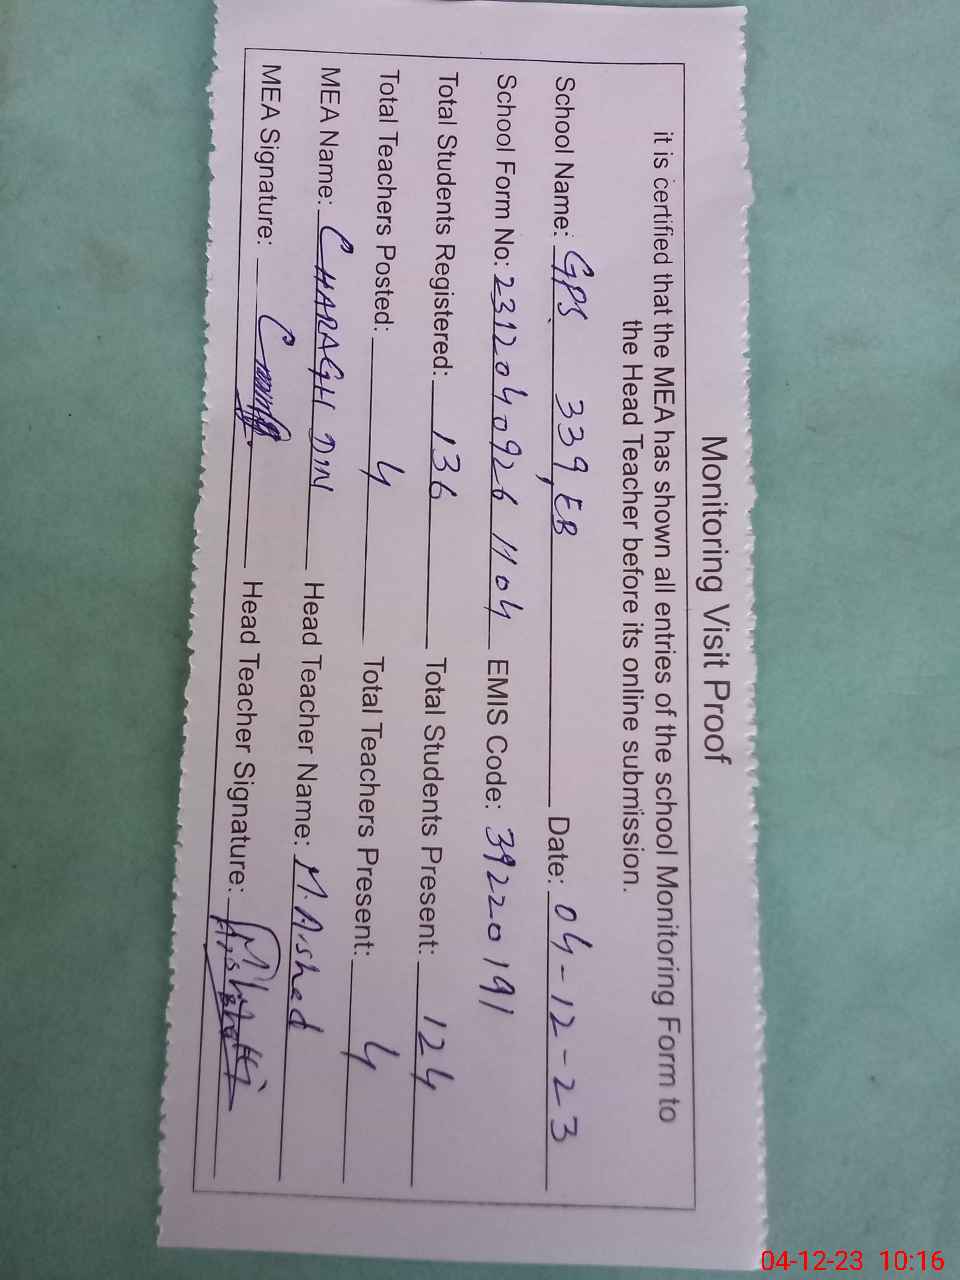 Monitoring Visit Proof
it is certified that the MEA has shown all entries of the school Monitoring Form to
the Head Teacher before its online submission.
School Name: GPS 339,EB Date: 04-12-23
School Form No: 2312040926 1104 EMIS Code: 39220191
Total Students Registered: 136 Total Students Present: 124
Total Teachers Posted: 4 Total Teachers Present: 4
MEA Name: CHARAGH DIN Head Teacher Name: M. Arshad
MEA Signature: Head Teacher Signature:
04-12-23 10:16